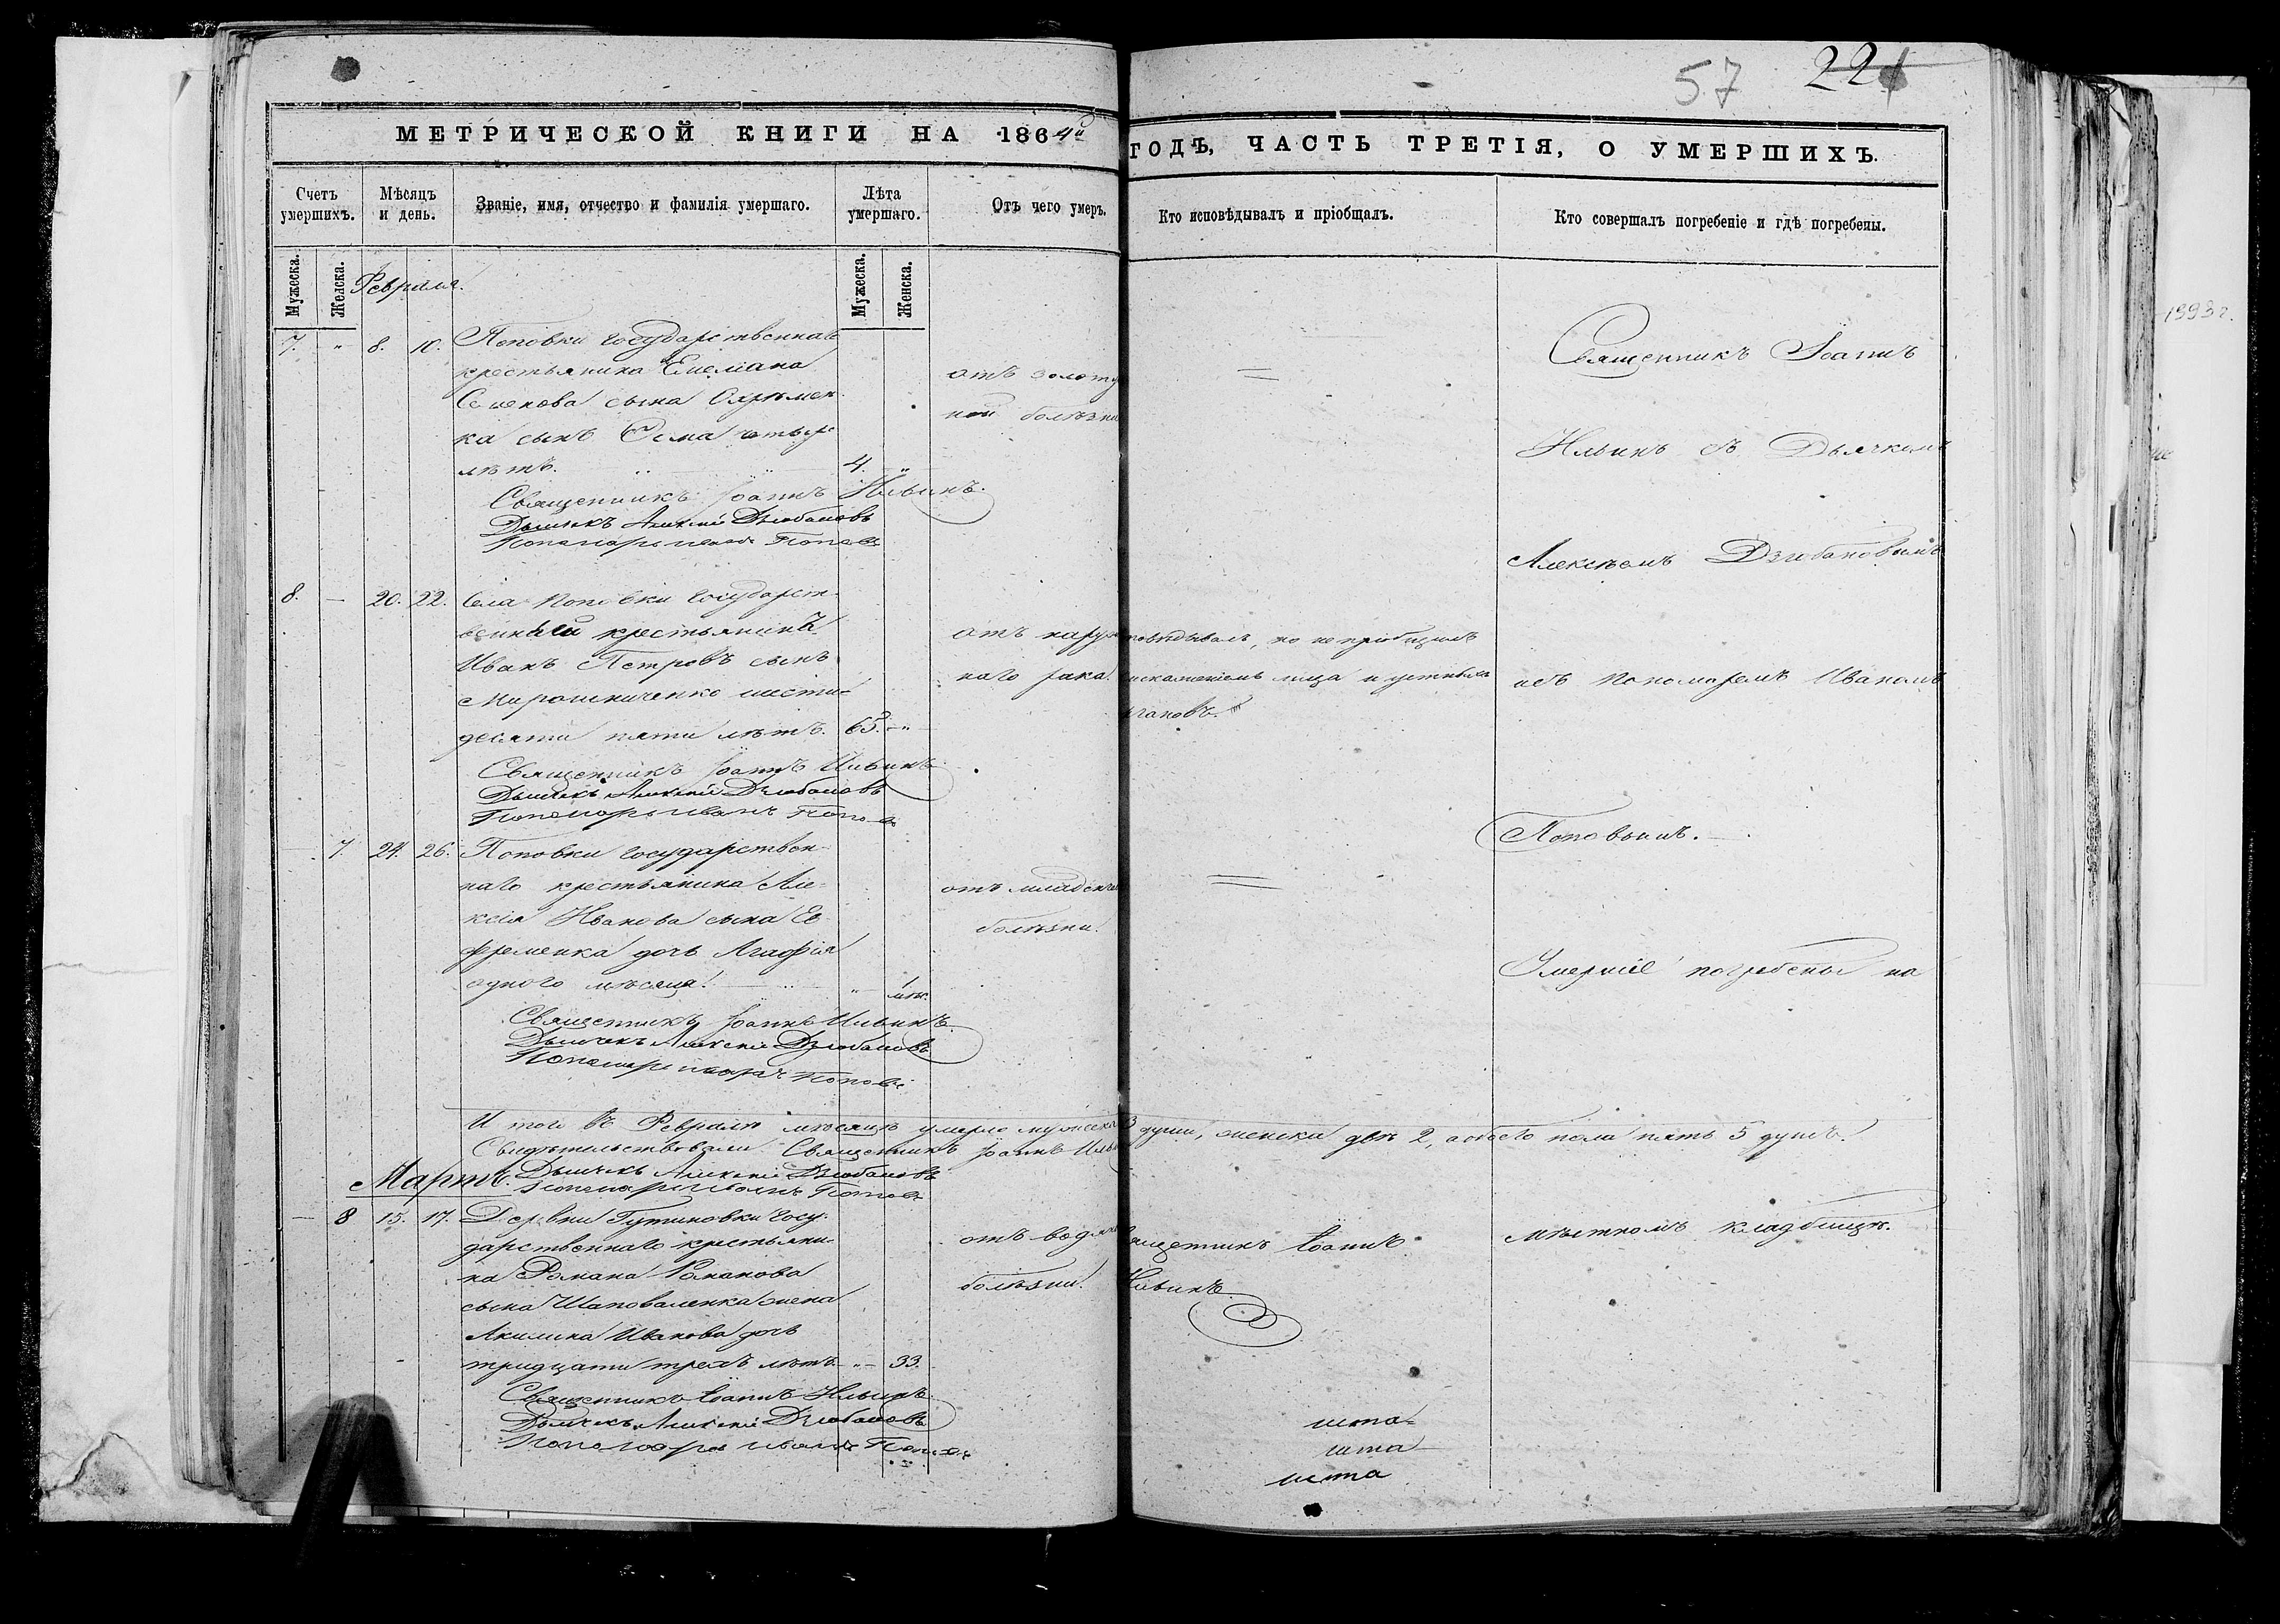 57 221
МЕТРИЧЕСКОЙ КНИГИ НА 1864й ГОДЪ, ЧАСТЬ ТРЕТІЯ, О УМЕРШИХЪ.
Счетъ умершихъ.
Мѣсяцъ и день.
Званіе, имя, отчество и фамилія умершаго.
Лѣта умершаго.
Отъ чего умеръ.
Кто исповѣдывалъ и пріобщалъ.
Кто совершалъ погребеніе и гдѣ погребены.
Мужеска.
Женска.
Мужеска.
Женска.
Февраля.
7. " 8. 10. Поповки государственнаго
крестьянина Емелiана
Семенова сына
ка сынъ четыре
лѣтъ. 4. "
отъ золоту
ной болѣзни
Священникъ Іоаннъ Ильинъ.
Дьячекъ Алексій Дзюбановъ
Пономарь Иванъ Поповъ
8. — 20. 22. Села Поповки государст-
венный крестьянинъ
Иванъ Петровъ сынъ
Мирошниченко шести-
десяти пяти лѣтъ. 65. — "
отъ наруж
наго рака.
повѣдывалъ, но не пріобщилъ
искаженіемъ лица и устныхъ
гановъ.
Священникъ Іоаннъ Ильинъ
Дьячекъ Алексій Дзюбановъ
Пономарь Иванъ Поповъ
— 7. 24. 26. Поповки государствен-
наго крестьянина Але-
ксія Иванова сына Еф-
фременка дочь Агафія
одного мѣсяца. " 1 мѣ.
отъ младенче
болѣзни.
Священникъ Іоаннъ Ильинъ.
Дьячекъ Алексій Дзюбановъ
Пономарь Иванъ Поповъ
И того въ Февралѣ мѣсяцѣ умерло мужеска 3 души, женска двѣ 2, а обоего пола пять 5 душъ.
Свидѣтельствовали: Священникъ Іоаннъ Ильи
Дьячекъ Алексій Дзюбановъ
Пономарь Иванъ Поповъ
Мартъ.
— 8 15. 17. Деревни Гутиновки госу-
дарственнаго крестьяни-
на Романа Романова
сына Шаповаленка жена
Акилина Иванова дочь
тридцати трехъ лѣтъ " — 33.
отъ водяно
болѣзни.
ященникъ Іоаннъ
Ильинъ
Священникъ Іоаннъ Ильинъ
Дьячекъ Алексій Дзюбановъ
Пономарь Иванъ Поповъ
Священникъ Іоаннъ
Ильинъ съ Дьячкомъ
Алексѣемъ Дзюбановымъ
и съ Пономаремъ Иваномъ
Поповымъ.
Умершіе погребены на
мѣстномъ кладбищѣ.
1993г.